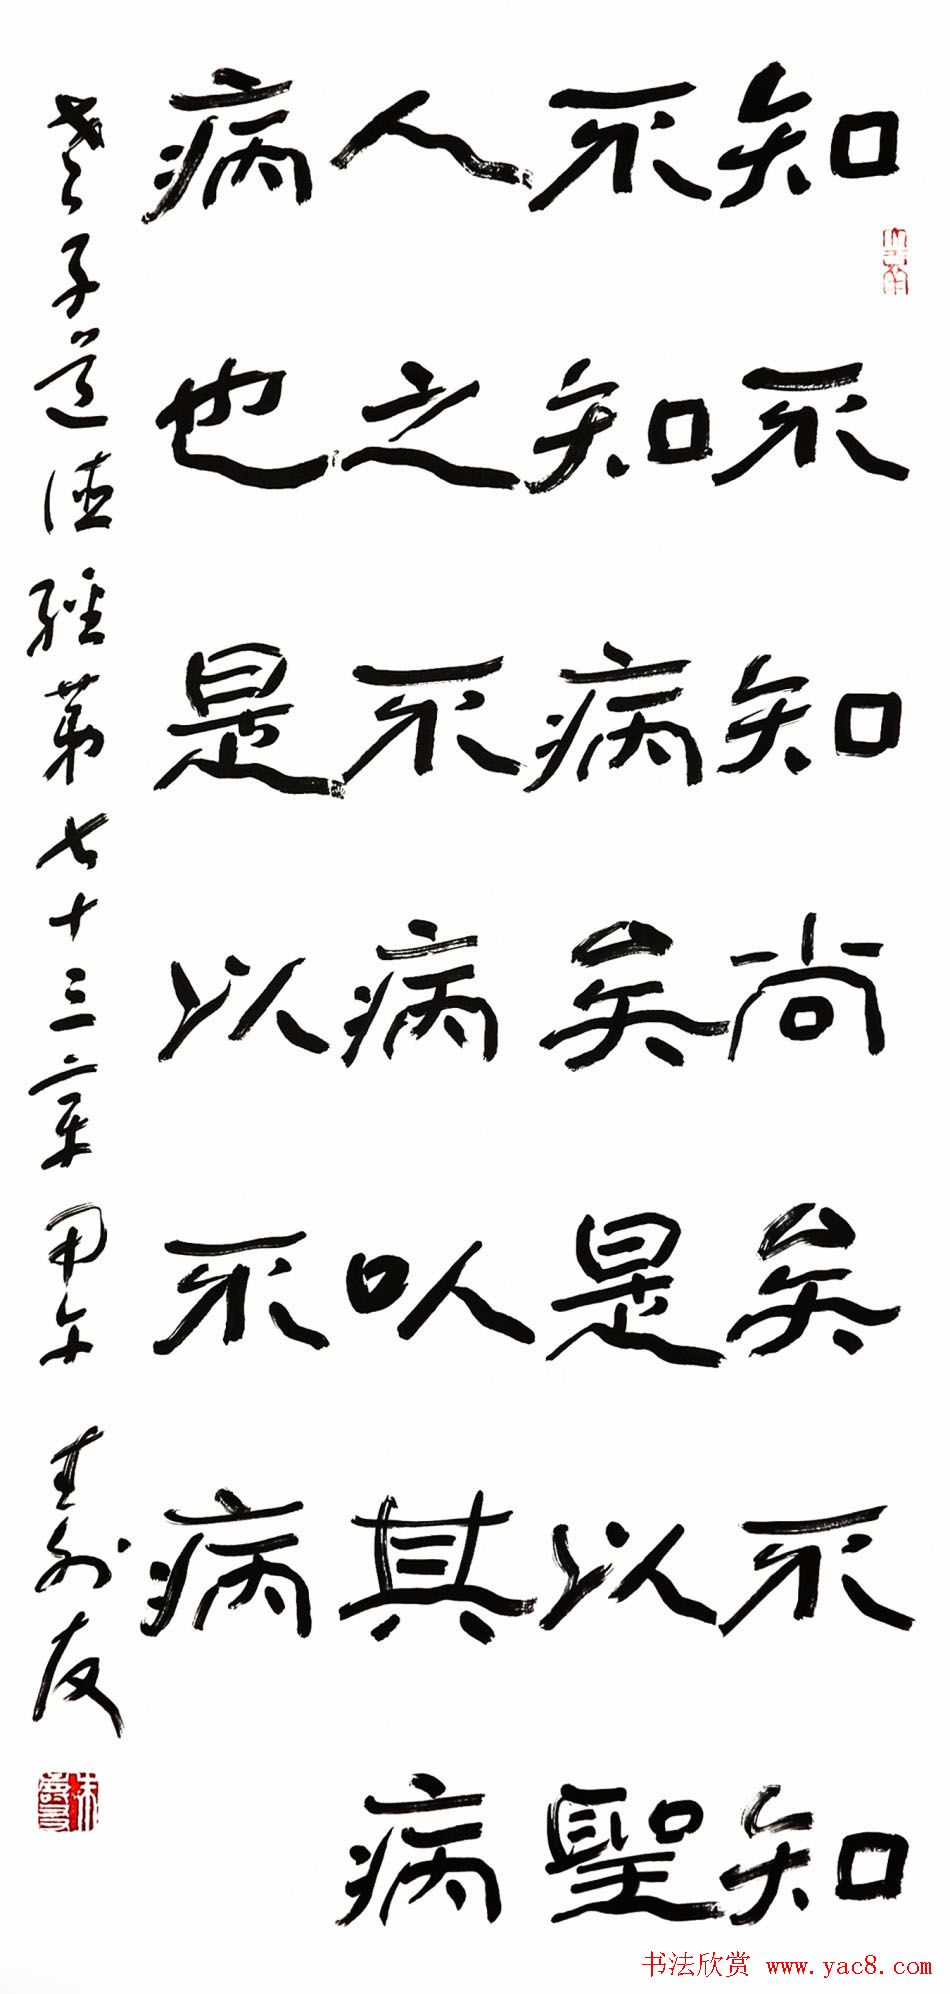 知不知尚矣不知
不知病矣是以聖
人之不病以其病
病也是以不病
老子道德經第七十三章甲午壽友
朱壽友
书法欣赏 www.yac8.com